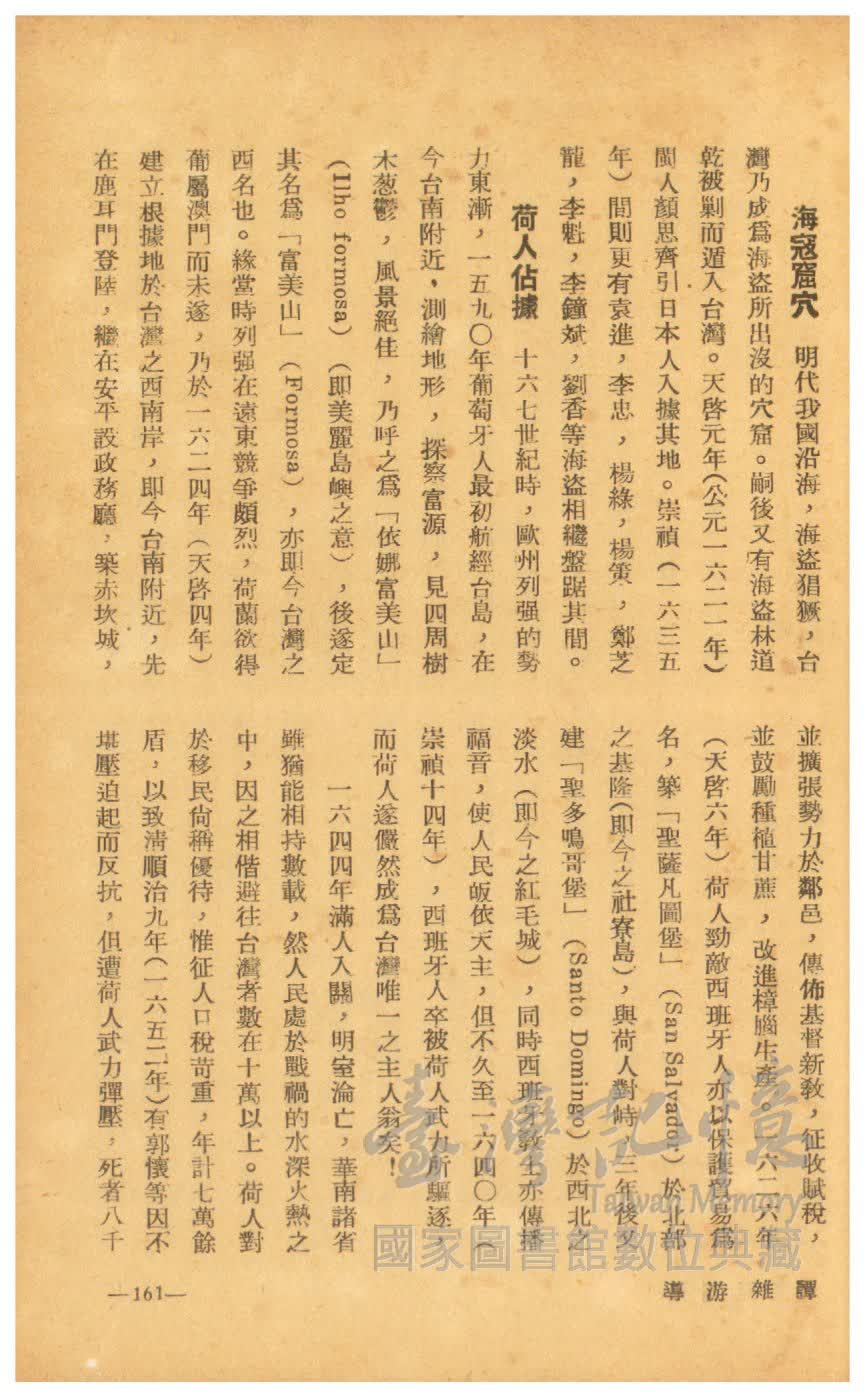 海寇窟穴　明代我國沿海，海盜猖獗，台
灣乃成爲海盜所出沒的穴窟。嗣後又有海盜林道
乾被剿而遁入台灣。天啓元年（公元一六二一年）
閩人顏思齊引日本人入據其地。崇禎（一六三五
年）間則更有袁進，李忠，楊綠，楊策，鄭芝
龍，李魁，李鐘斌，劉香等海盜相繼盤踞其間。
荷人佔據　十六七世紀時，歐州列强的勢
力東漸，一五九〇年葡萄牙人最初航經台島，在
今台南附近，測繪地形，探察富源，見四周樹
木葱鬱，風景絕佳，乃呼之爲「依娜富美山」
（Ilho formosa）（即美麗島嶼之意），後遂定
其名爲「富美山」（Formosa），亦即今台灣之
西名也。緣當時列强在遠東競爭頗烈，荷蘭欲得
葡屬澳門而未遂，乃於一六二四年（天啓四年）
建立根據地於台灣之西南岸，即今台南附近，先
在鹿耳門登陸，繼在安平設政務廳，築赤坎城，
並擴張勢力於鄰邑，傳佈基督新教，征收賦稅，
並鼓勵種植甘蔗，改進樟腦生產。一六二六年
（天啓六年）荷人勁敵西班牙人亦以保護貿易爲
名，築「聖薩凡圖堡」（San Salvador）於北部
之基隆（即今之社寮島），與荷人對峙，三年後又
建「聖多鳴哥堡」（Santo Domingo）於西北之
淡水（即今之紅毛城），同時西班牙敎士亦傳播
福音，使人民皈依天主，但不久至一六四〇年（
崇禎十四年），西班牙人卒被荷人武力所驅逐，
而荷人遂儼然成爲台灣唯一之主人翁矣！
一六四四年滿人入關，明室淪亡，華南諸省
雖猶能相持數載，然人民處於戰禍的水深火熱之
中，因之相偕避往台灣者數在十萬以上。荷人對
於移民尙稱優待，惟征人口稅苛重，年計七萬餘
盾，以致淸順治九年（一六五二年）有郭懷等因不
堪壓迫起而反抗，但遭荷人武力彈壓，死者八千
譚雜游導
—161—
臺灣記憶
Taiwan Memory
國家圖書館數位典藏